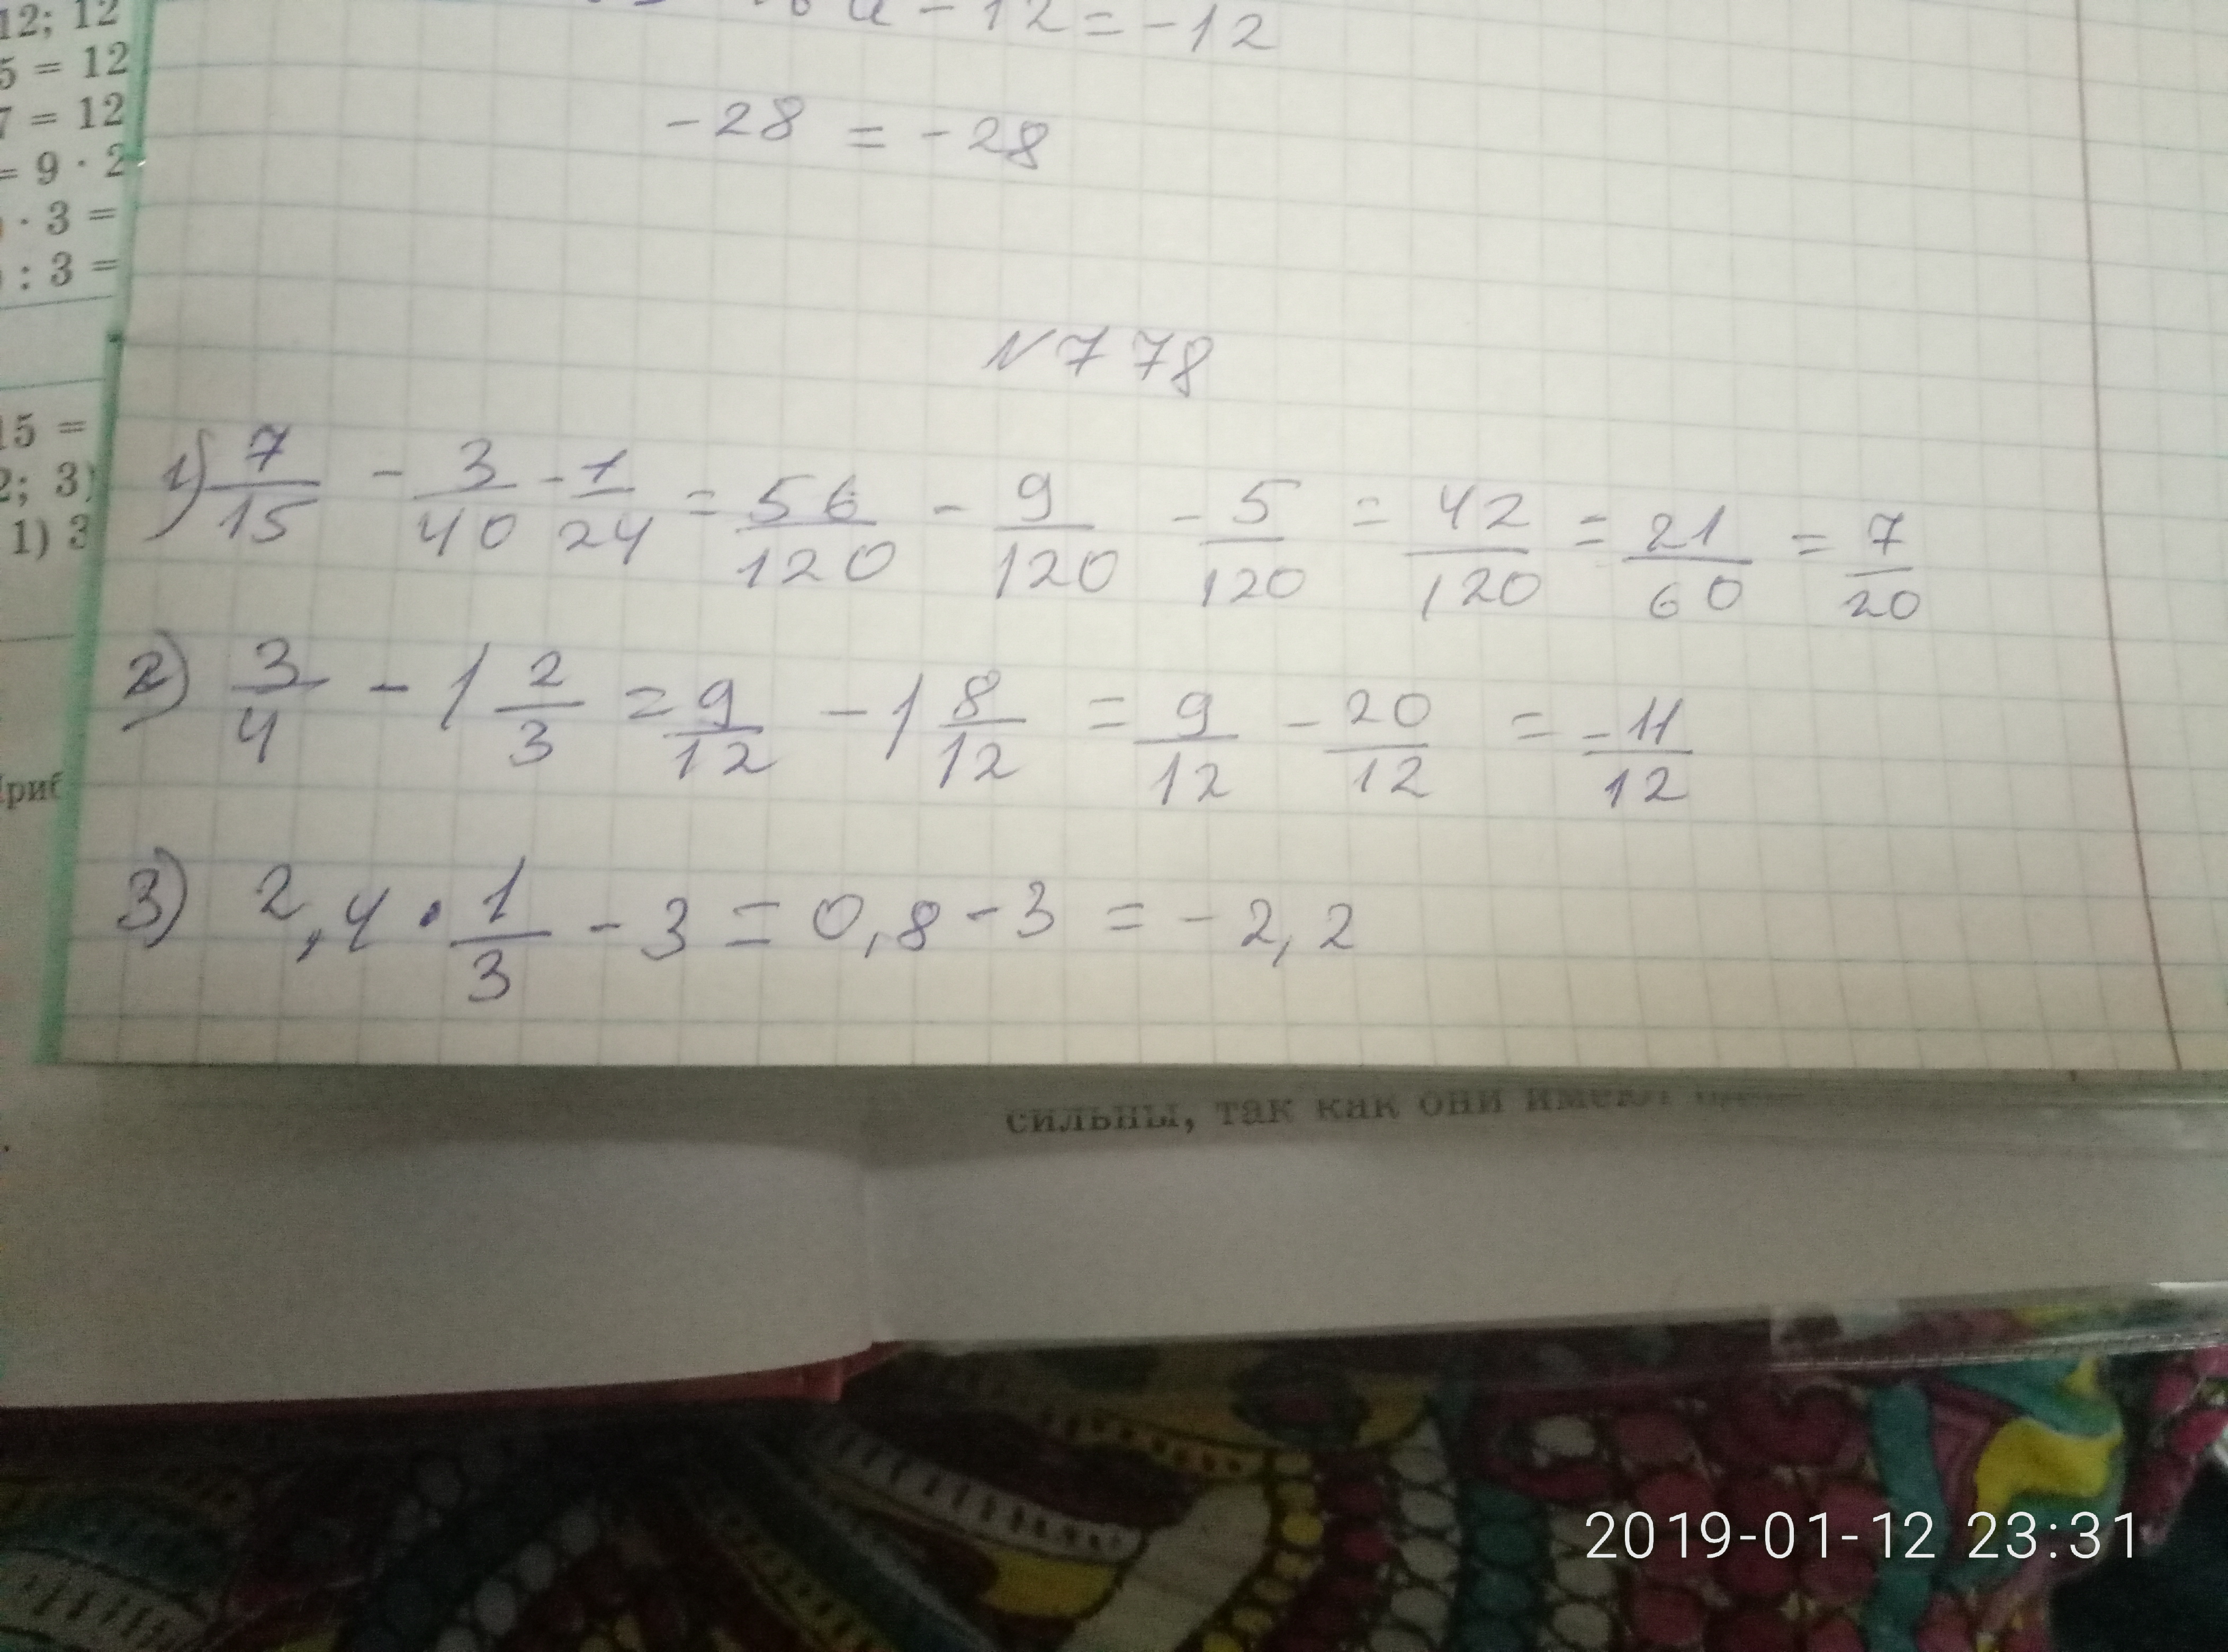 12; 12
5 = 12
7 = 12
= 9 · 2
· 3 =
: 3 =
15 =
2; 3)
1) 3
- 12 = -12
-28 = -28
N 778
1) 7/15 - 3/40 - 1/24 = 56/120 - 9/120 - 5/120 = 42/120 = 21/60 = 7/20
2) 3/4 - 1 2/3 = 9/12 - 1 8/12 = 9/12 - 20/12 = -11/12
3) 2,4 · 1/3 - 3 = 0,8 - 3 = -2,2
сильны, так как они имеют
2019-01-12 23:31